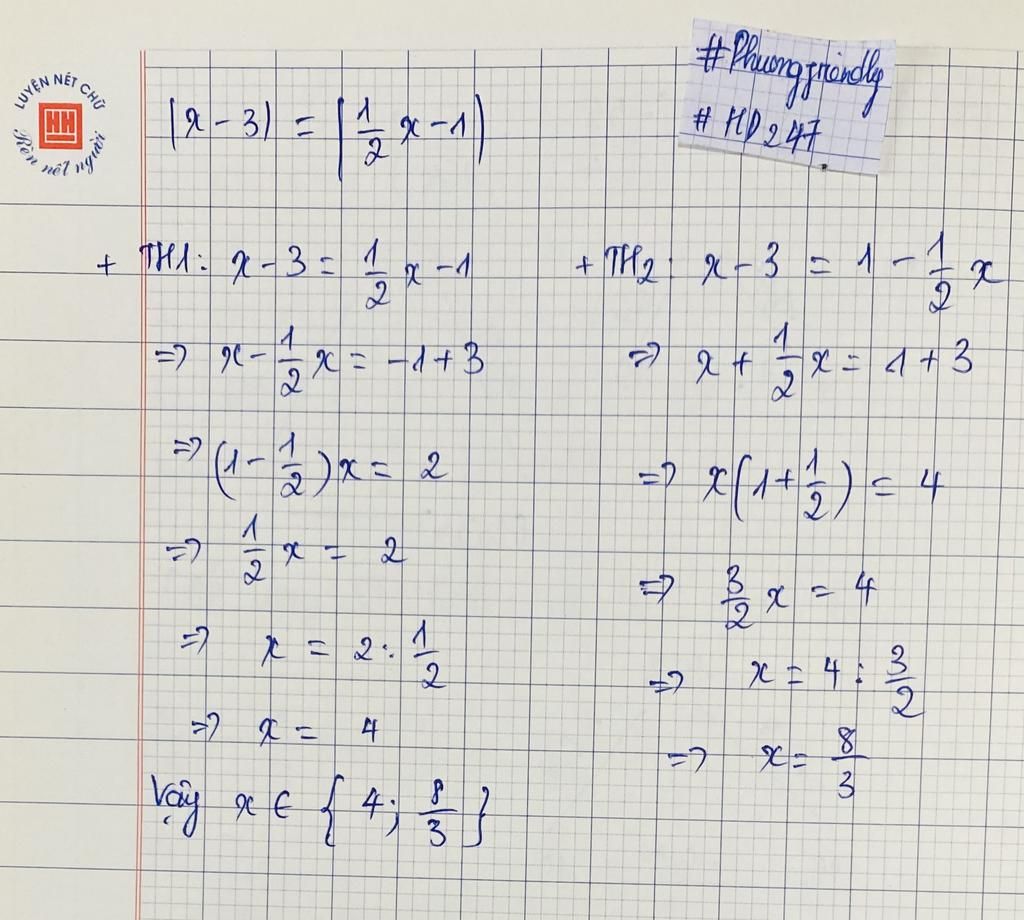 LUYỆN NÉT CHỮ
HH
Rèn nết người
#Phuongfriendly
# HD247
|x - 3| = |1/2 x - 1|
+ TH1: x - 3 = 1/2 x - 1
=> x - 1/2 x = -1 + 3
=> (1 - 1/2) x = 2
=> 1/2 x = 2
=> x = 2 : 1/2
=> x = 4
+ TH2: x - 3 = 1 - 1/2 x
=> x + 1/2 x = 1 + 3
=> x(1 + 1/2) = 4
=> 3/2 x = 4
=> x = 4 : 3/2
=> x = 8/3
Vậy x ∈ { 4; 8/3 }